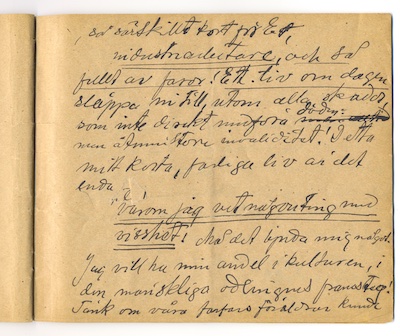 , så särskilt kort för Ett
industriarbetare, och så
fullt av faror! Ett liv om dagen
släppa ni till, utom alla skador,
som inte direkt medföra döden:
men åtminstone invaliditet! Detta
mitt korta, farliga liv är det
enda
varom jag vet någonting med
visshet! Må det ej
Jag vill ha min andel i kulturen, i
den mänskliga odlingens
Tänk om våra farfars föräldrar kunde